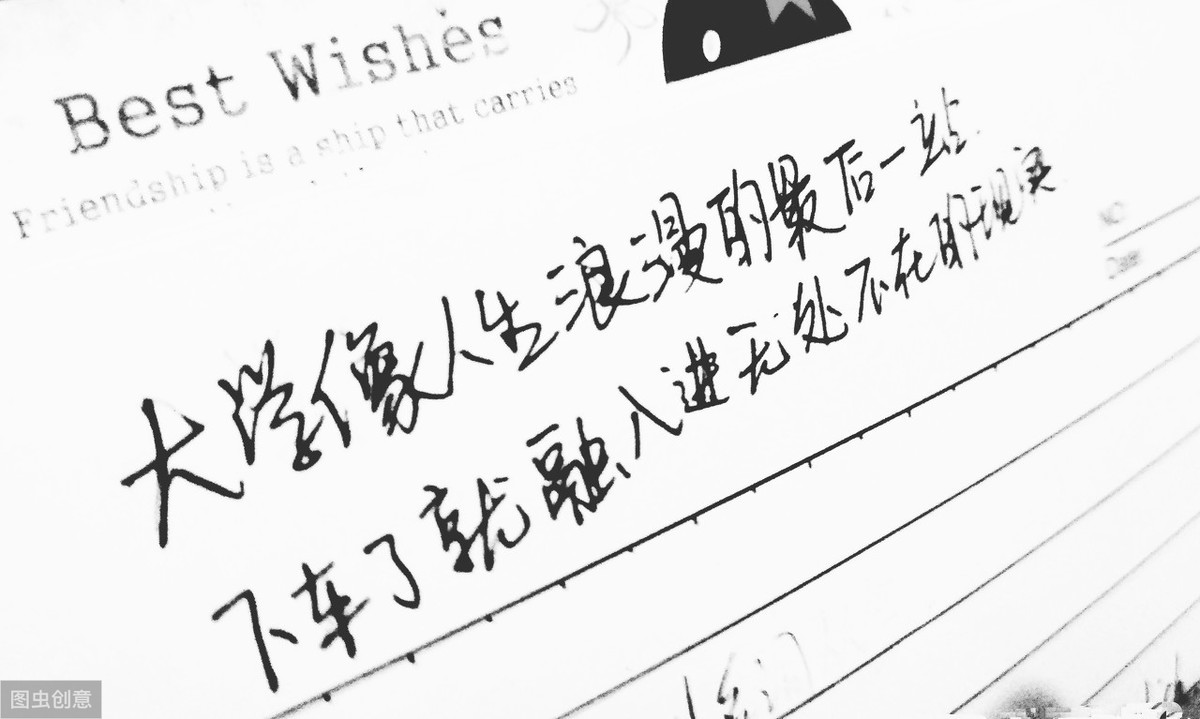 Best Wishes
Friendship is a ship that carries
大学像人生浪漫的最后一站
下车了就融入进无处不在的现实
NO
Date
图虫创意